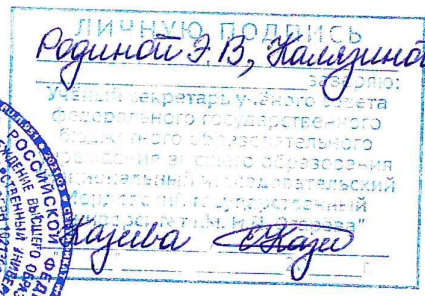 ЛИЧНУЮ ПОДПИСЬ
Родиной Э.В, Калязиной
заверяю:
Учёный секретарь учёного совета
федерального государственного
бюджетного образовательного
учреждения высшего образования
национальный исследовательский
Мордовский государственный
университет им. Н.П. Огарёва"
г.
РОССИЙСКОЙ ФЕД
ЖДЕНИЕ ВЫСШЕГО ОБРА